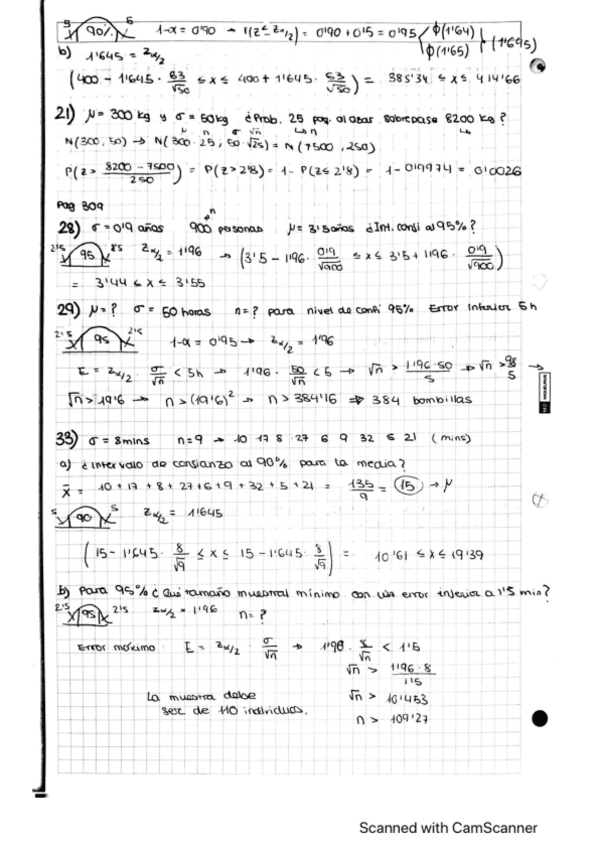 5 90% 5 1-α = 0'90 → P(Z ≤ Zα/2) = 0'90 + 0'05 = 0'95 ⟨ϕ(1'64) ϕ(1'65)⟩ (1'645)
b) 1'645 = Zα/2
(400 - 1'645 · 63/√50 ≤ x ≤ 400 + 1'645 · 63/√50) = 385'34 ≤ x ≤ 414'66
21) μ = 300 kg y σ = 50kg ¿Prob. 25 paq. al azar sobrepase 8200 kg?
N(300, 50) → N(300 · 25, 50 · √25) = N(7500, 250)
P(Z > 8200 - 7500 / 250) = P(Z > 2'8) = 1 - P(Z ≤ 2'8) = 1 - 0'9974 = 0'0026
Pag 309
28) σ = 0'9 años 900 personas μ = 3'5 años ¿Int. confi al 95%?
2'5 95 2'5 Zα/2 = 1'96 → (3'5 - 1'96 · 0'9/√900 ≤ x ≤ 3'5 + 1'96 · 0'9/√900)
= 3'44 ≤ x ≤ 3'55
29) μ = ? σ = 50 horas n = ? para nivel de confi 95% Error inferior 5h
2'5 95 2'5 1-α = 0'95 → Zα/2 = 1'96
E = Zα/2 · σ/√n < 5h → 1'96 · 50/√n < 5 → √n > 1'96·50/5 → √n > 98/5
√n > 19'6 → n > (19'6)² → n > 384'16 ⇒ 384 bombillas
33) σ = 8 mins n = 9 → 10 17 8 27 6 9 32 5 21 (mins)
a) ¿intervalo de confianza al 90% para la media?
x̄ = 10 + 17 + 8 + 27 + 6 + 9 + 32 + 5 + 21 = 135/9 = 15 → μ
5 90 5 Zα/2 = 1'645
(15 - 1'645 · 8/√9 ≤ x ≤ 15 - 1'645 · 8/√9) = 10'61 ≤ x ≤ 19'39
b) Para 95% ¿Qué tamaño muestral mínimo con un error inferior a 1'5 min?
2'5 95 2'5 Zα/2 = 1'96 n = ?
Error máximo: E = Zα/2 · σ/√n → 1'96 · 8/√n < 1'5
√n > 1'96 · 8 / 1'5
La muestra debe √n > 10'453
ser de 110 individuos. n > 109'27
Scanned with CamScanner